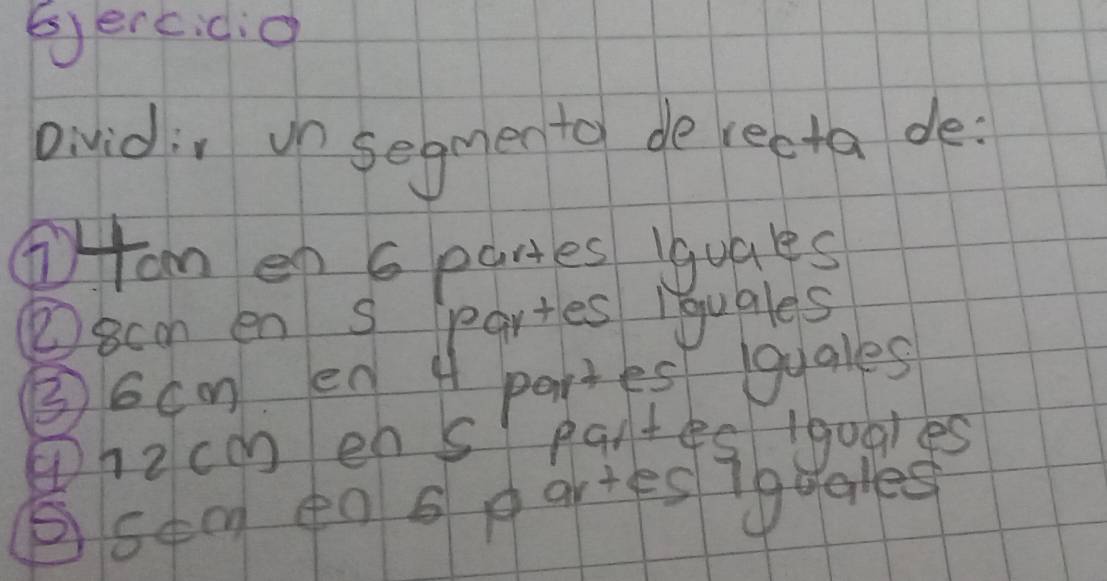 Ejercicio
Dividir un segmento de recta de:
① 4cm en 6 partes iguales
② 8cm en 5 partes iguales
③ 6cm en 4 partes iguales
④ 12cm en 5 partes iguales
⑤ 5cm en 6 partes iguales